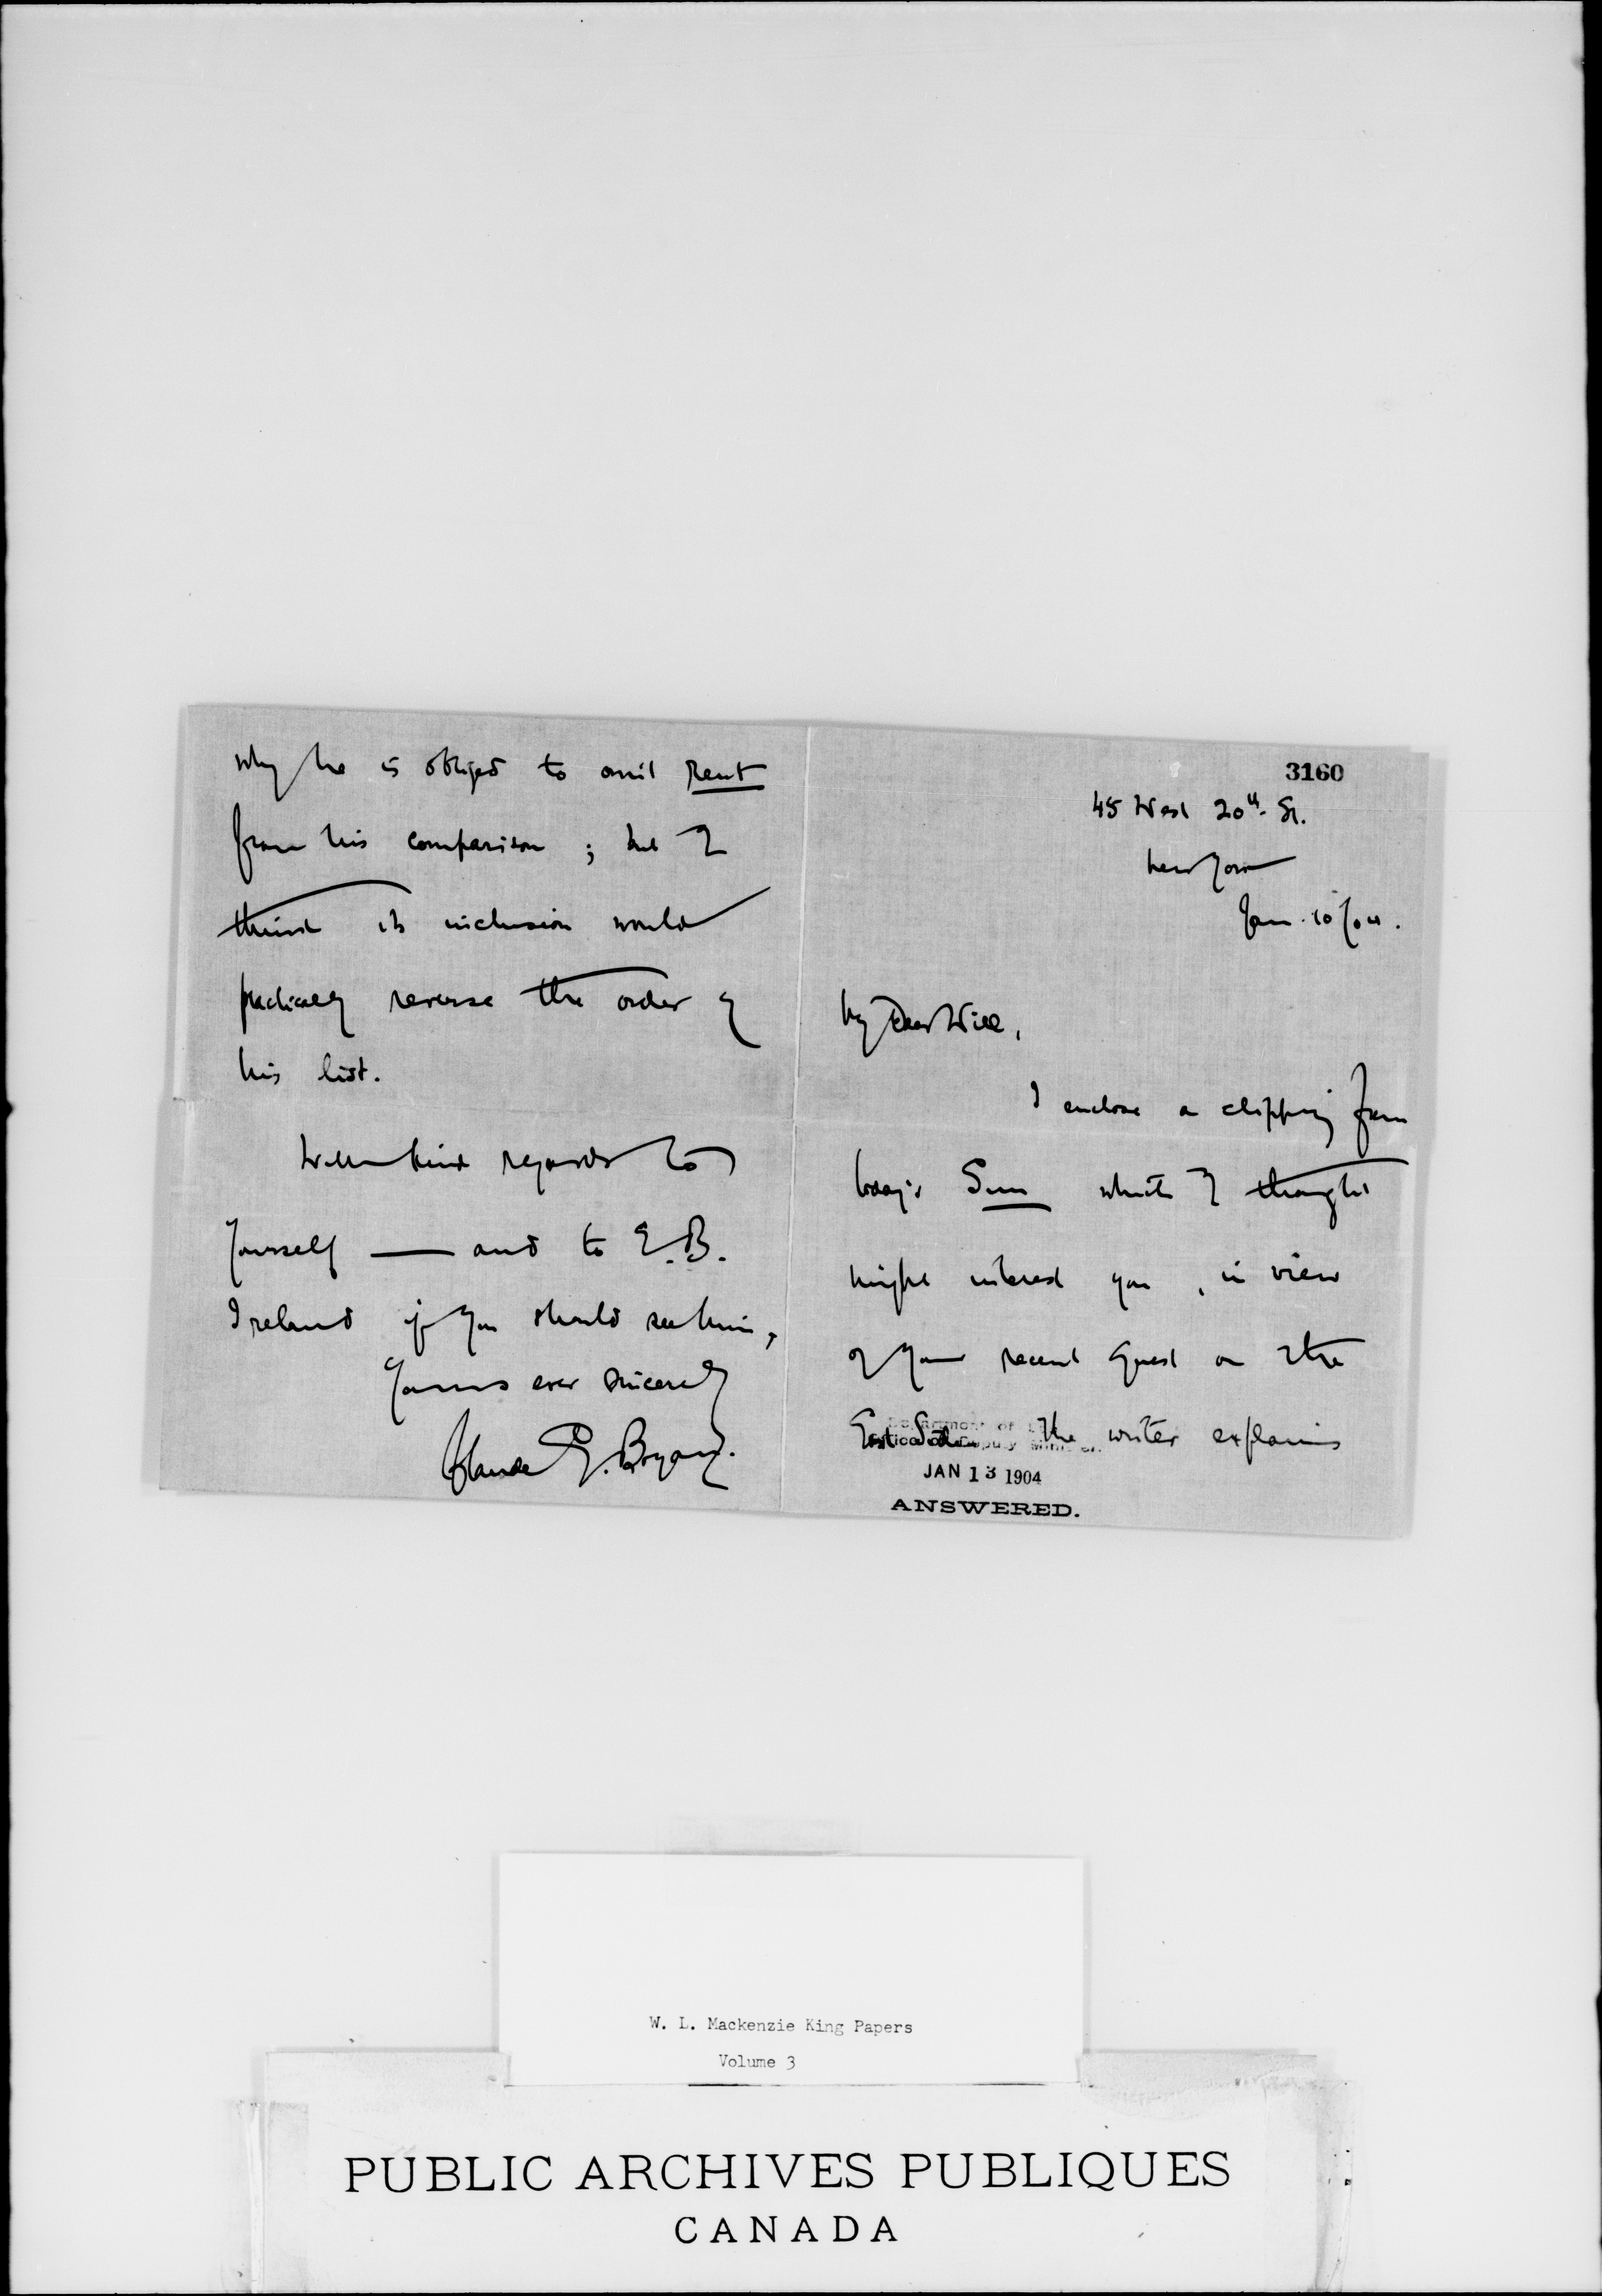 3160
45 West 20th. St.
New York
Jan. 10/04.
My Dear Will,
I enclose a clipping from
today's Sun which I thought
might interest you, in view
of your recent quest on the
East Side. The writer explains
Department of
Office of Deputy Minister.
JAN 13 1904
ANSWERED.
why he is obliged to omit Rent
from his comparison; but I
think its inclusion would
practically reverse the order of
his list.
With kind regards to
yourself — and to E.B.
Ireland if you should see him,
Yours ever sincerely
Claude G. Bryan.
W. L. Mackenzie King Papers
Volume 3
PUBLIC ARCHIVES PUBLIQUES
CANADA